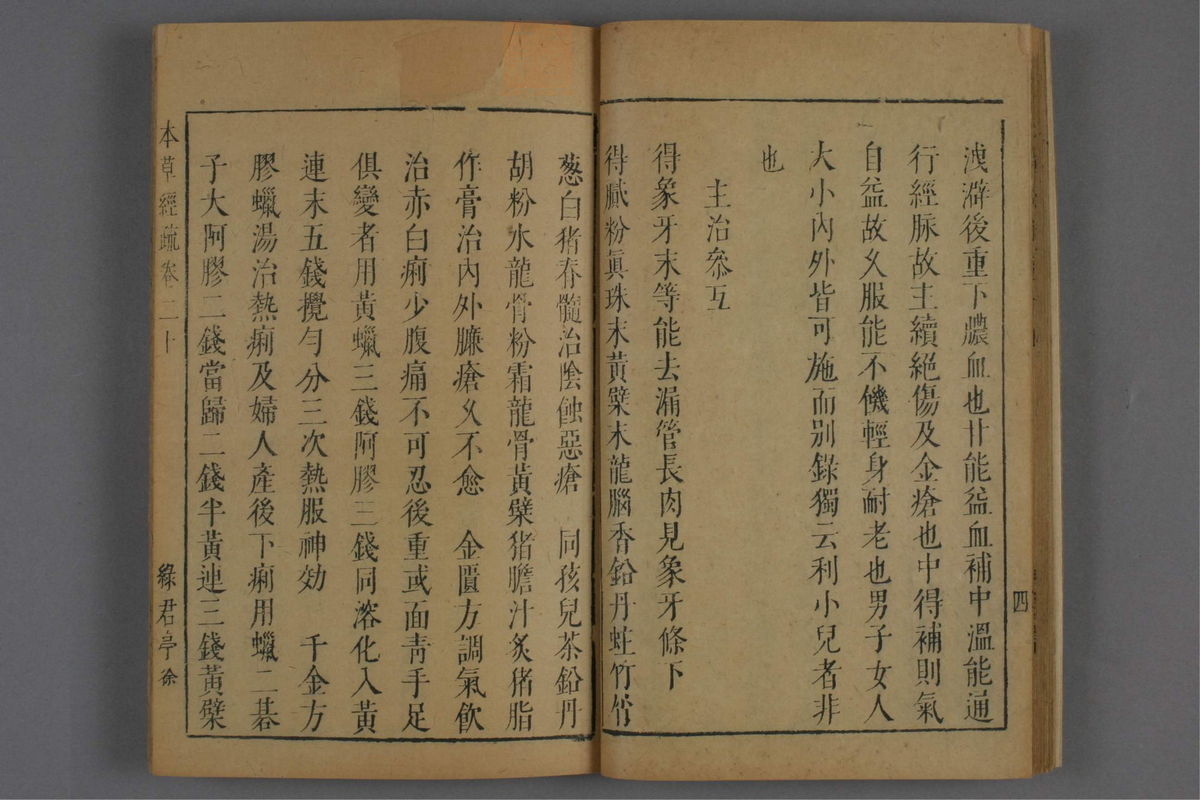 洩澼後重下膿血也甘能益血補中溫能通
行經脉故主續絕傷及金瘡也中得補則氣
自益故久服能不饑輕身耐老也男子女人
大小內外皆可施而别錄獨云利小兒者非
也
主治叅互
得象牙末等能去漏管長肉見象牙條下
得膩粉眞珠末黃檗末龍腦香鉛丹蛀竹
四
葱白猪脊髓治陰蝕惡瘡 同孩兒茶鉛丹
胡粉水龍骨粉霜龍骨黃檗猪膽汁炙猪脂
作膏治內外臁瘡久不愈 金匱方調氣飲
治赤白痢少腹痛不可忍後重或面靑手足
俱變者用黃蠟三錢阿膠三錢同溶化入黃
連末五錢攪勻分三次熱服神効 千金方
膠蠟湯治熱痢及婦人產後下痢用蠟二碁
子大阿膠二錢當歸二錢半黃連三錢黃檗
本草經疏卷二十
綠君亭 徐